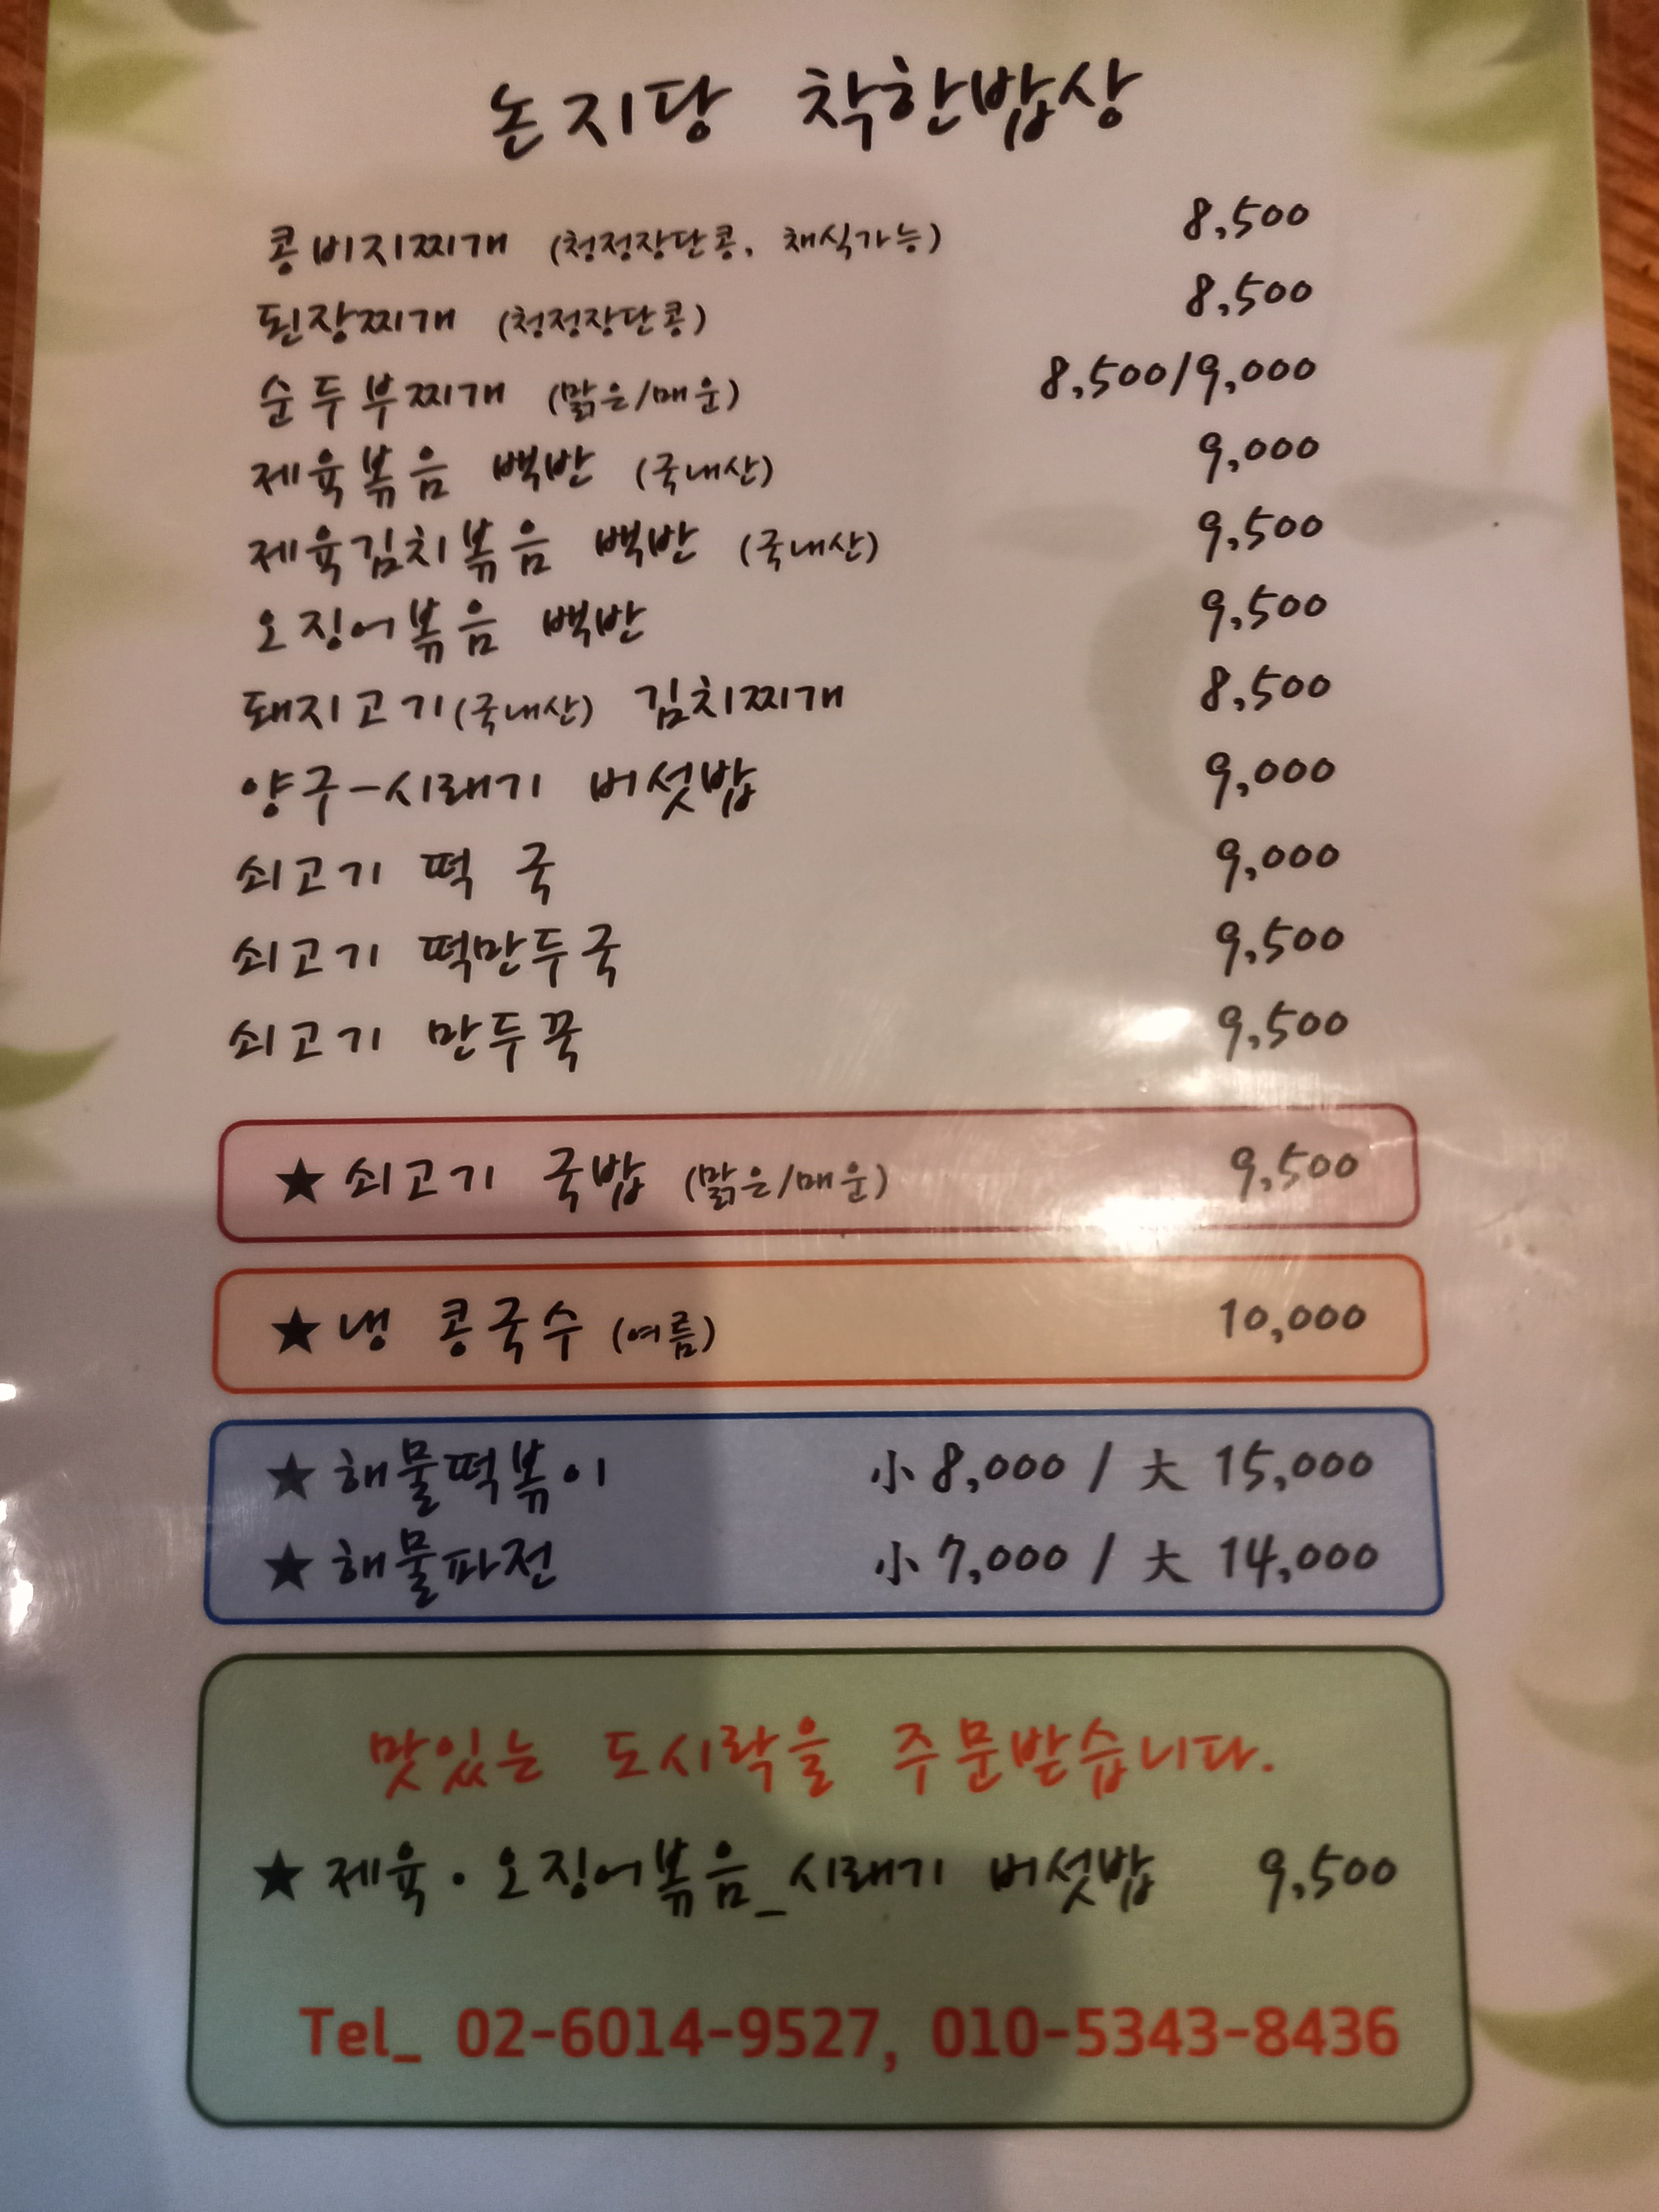 논지당 착한밥상
콩비지찌개 (청정장단콩, 채식가능) 8,500
된장찌개 (청정장단콩) 8,500
순두부찌개 (맑은/매운) 8,500/9,000
제육볶음 백반 (국내산) 9,000
제육김치볶음 백반 (국내산) 9,500
오징어볶음 백반 9,500
돼지고기(국내산) 김치찌개 8,500
양구-시래기 버섯밥 9,000
쇠고기 떡 국 9,000
쇠고기 떡만두국 9,500
쇠고기 만두꾹 9,500
★ 쇠고기 국밥 (맑은/매운) 9,500
★ 냉 콩국수 (여름) 10,000
★ 해물떡볶이 小 8,000 / 大 15,000
★ 해물파전 小 7,000 / 大 14,000
맛있는 도시락을 주문받습니다.
★ 제육·오징어볶음_시래기 버섯밥 9,500
Tel_ 02-6014-9527, 010-5343-8436